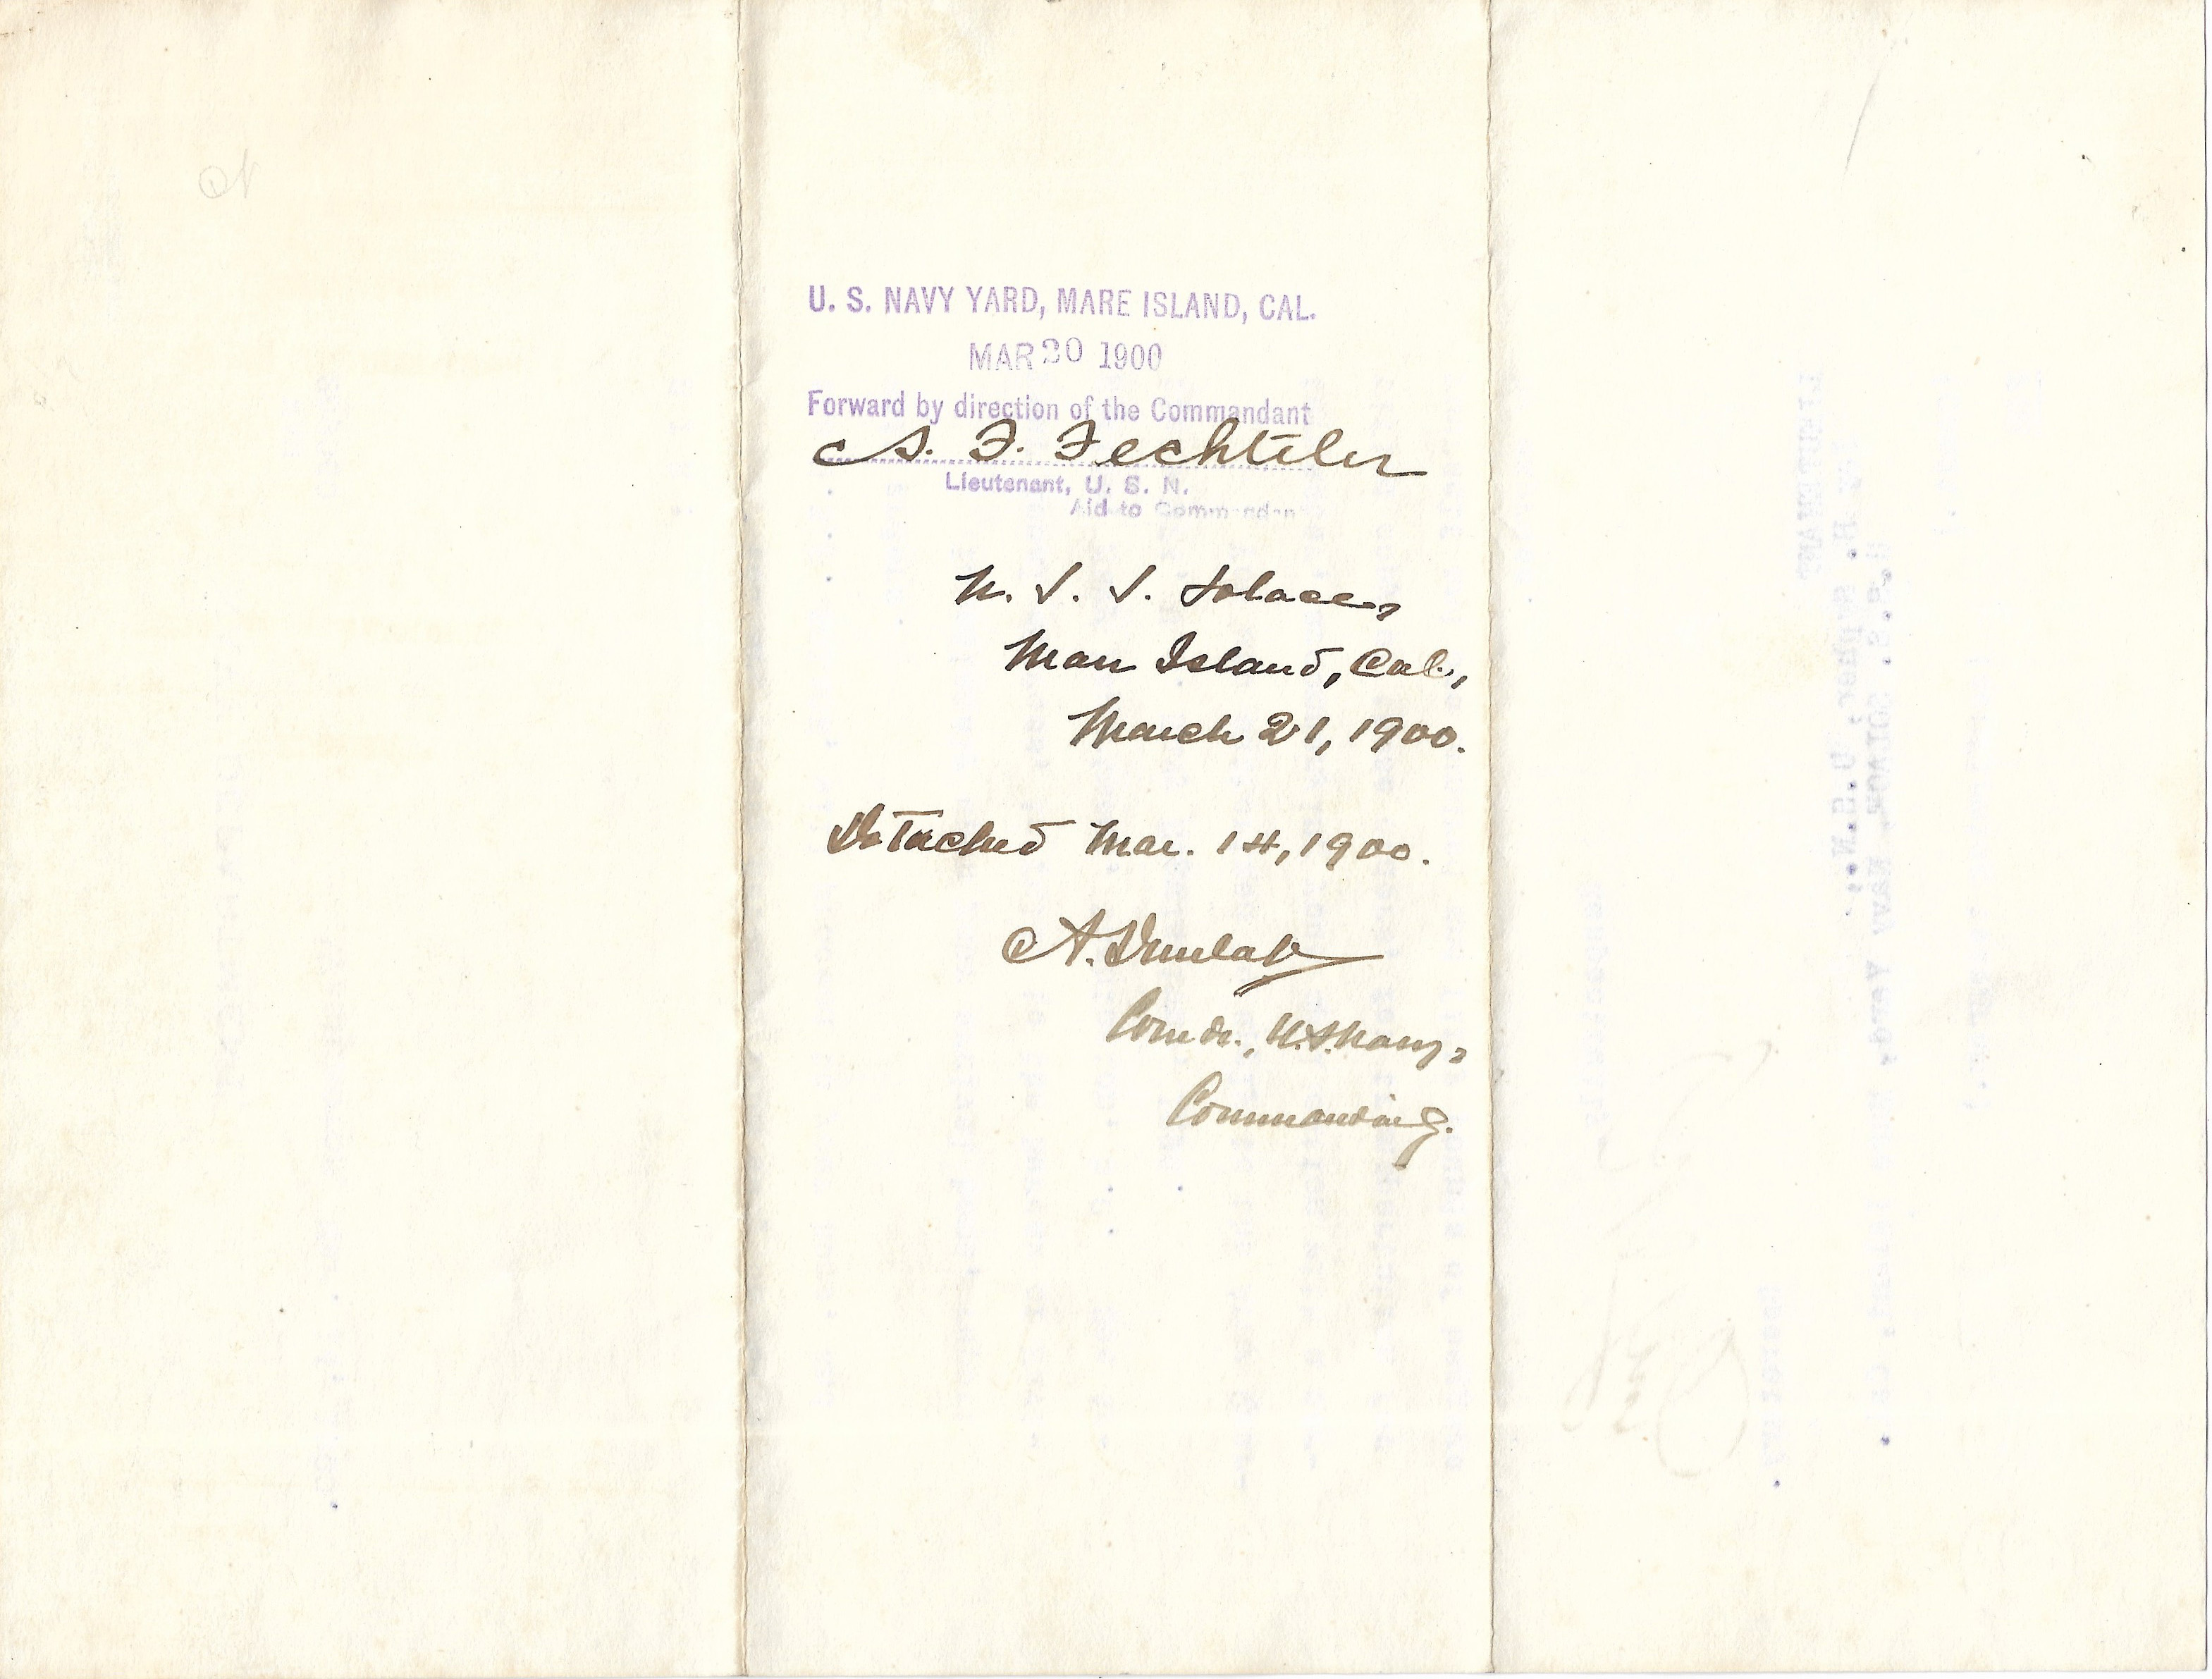 U. S. NAVY YARD, MARE ISLAND, CAL.
MAR 20 1900
Forward by direction of the Commandant
A. F. Fechteler
Lieutenant, U. S. N.
Aid to Commandant
U. S. S. Solace,
Mare Island, Cal.,
March 21, 1900.
Detached Mar. 14, 1900.
A. Dunlap
Comdr., U.S. Navy,
Commanding.